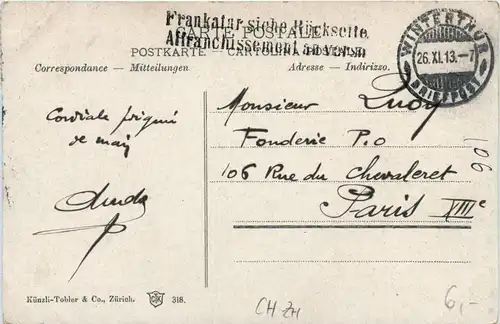 Frankatur siehe Rückseite
Affranchissement au verso
CARTE POSTALE
POSTKARTE — CARTOLINA POSTALE
Correspondance — Mitteilungen
Adresse — Indirizzo.
WINTERTHUR
26.XI.13.-7
BRIEFPOST
Cordiale
de
Monsieur
Fonderie P.O
106 Rue du Chevaleret
Paris XIIIe
106
Künzli-Tobler & Co., Zürich.
318.
CH ZH
6,-